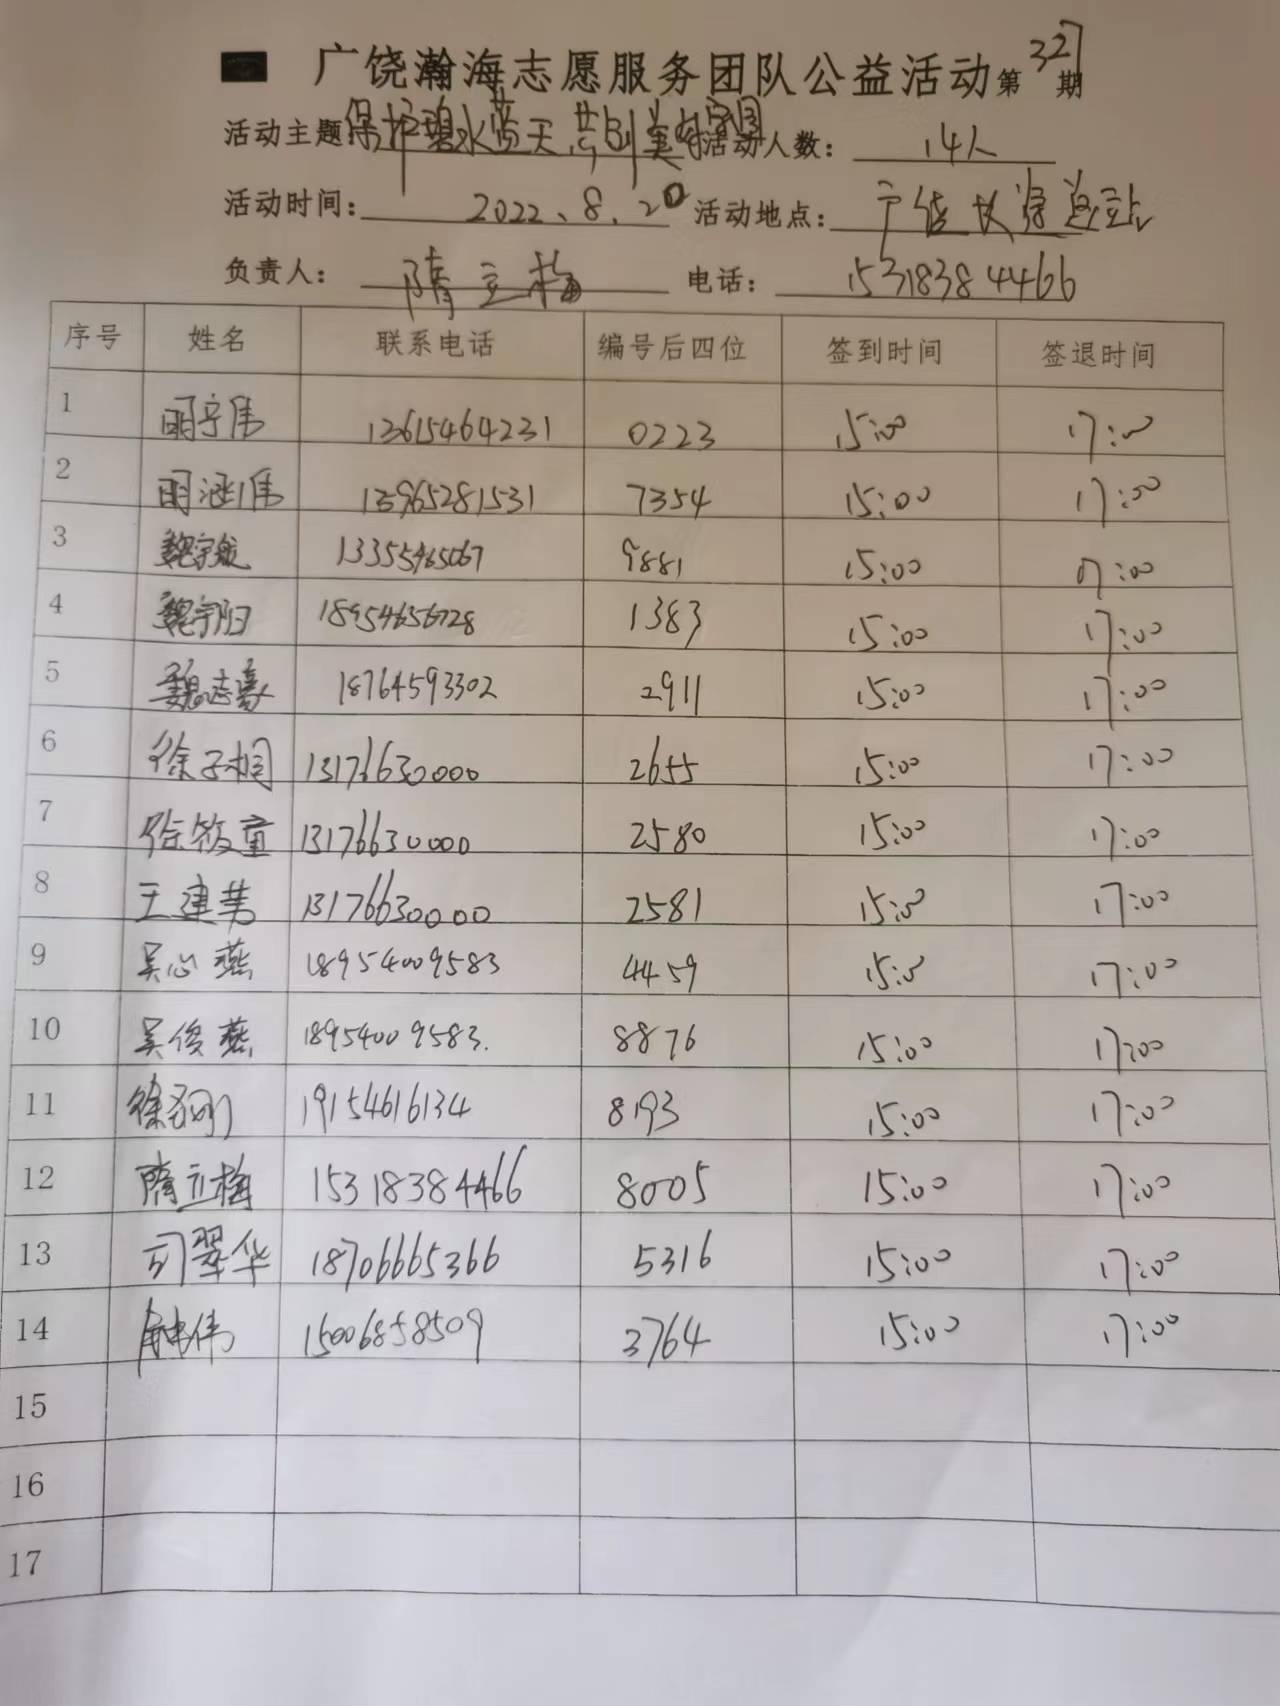 广饶瀚海志愿服务团队公益活动第327期
活动主题:保护碧水蓝天共创美好家园 活动人数: 14人
活动时间: 2022.8.20 活动地点: 广饶长途总站
负责人: 隋立梅 电话: 15318384466
序号 姓名 联系电话 编号后四位 签到时间 签退时间
1 明宇伟 13615464231 0223 15:00 17:00
2 明涵伟 13965281531 7354 15:00 17:00
3 魏宇航 13355465067 9881 15:00 17:00
4 魏宇阳 18954656728 1383 15:00 17:00
5 魏志豪 18764593302 2911 15:00 17:00
6 徐子桐 13176630000 2655 15:00 17:00
7 徐牧童 13176630000 2580 15:00 17:00
8 王建 13176630000 2581 15:00 17:00
9 吴心燕 18954009583 4459 15:00 17:00
10 吴俊燕 18954009583. 8876 15:00 17:00
11 徐 刚 19154616134 8193 15:00 17:00
12 隋立梅 15318384466 8005 15:00 17:00
13 司翠华 18706665366 5316 15:00 17:00
14 伟 15006858509 3764 15:00 17:00
15
16
17